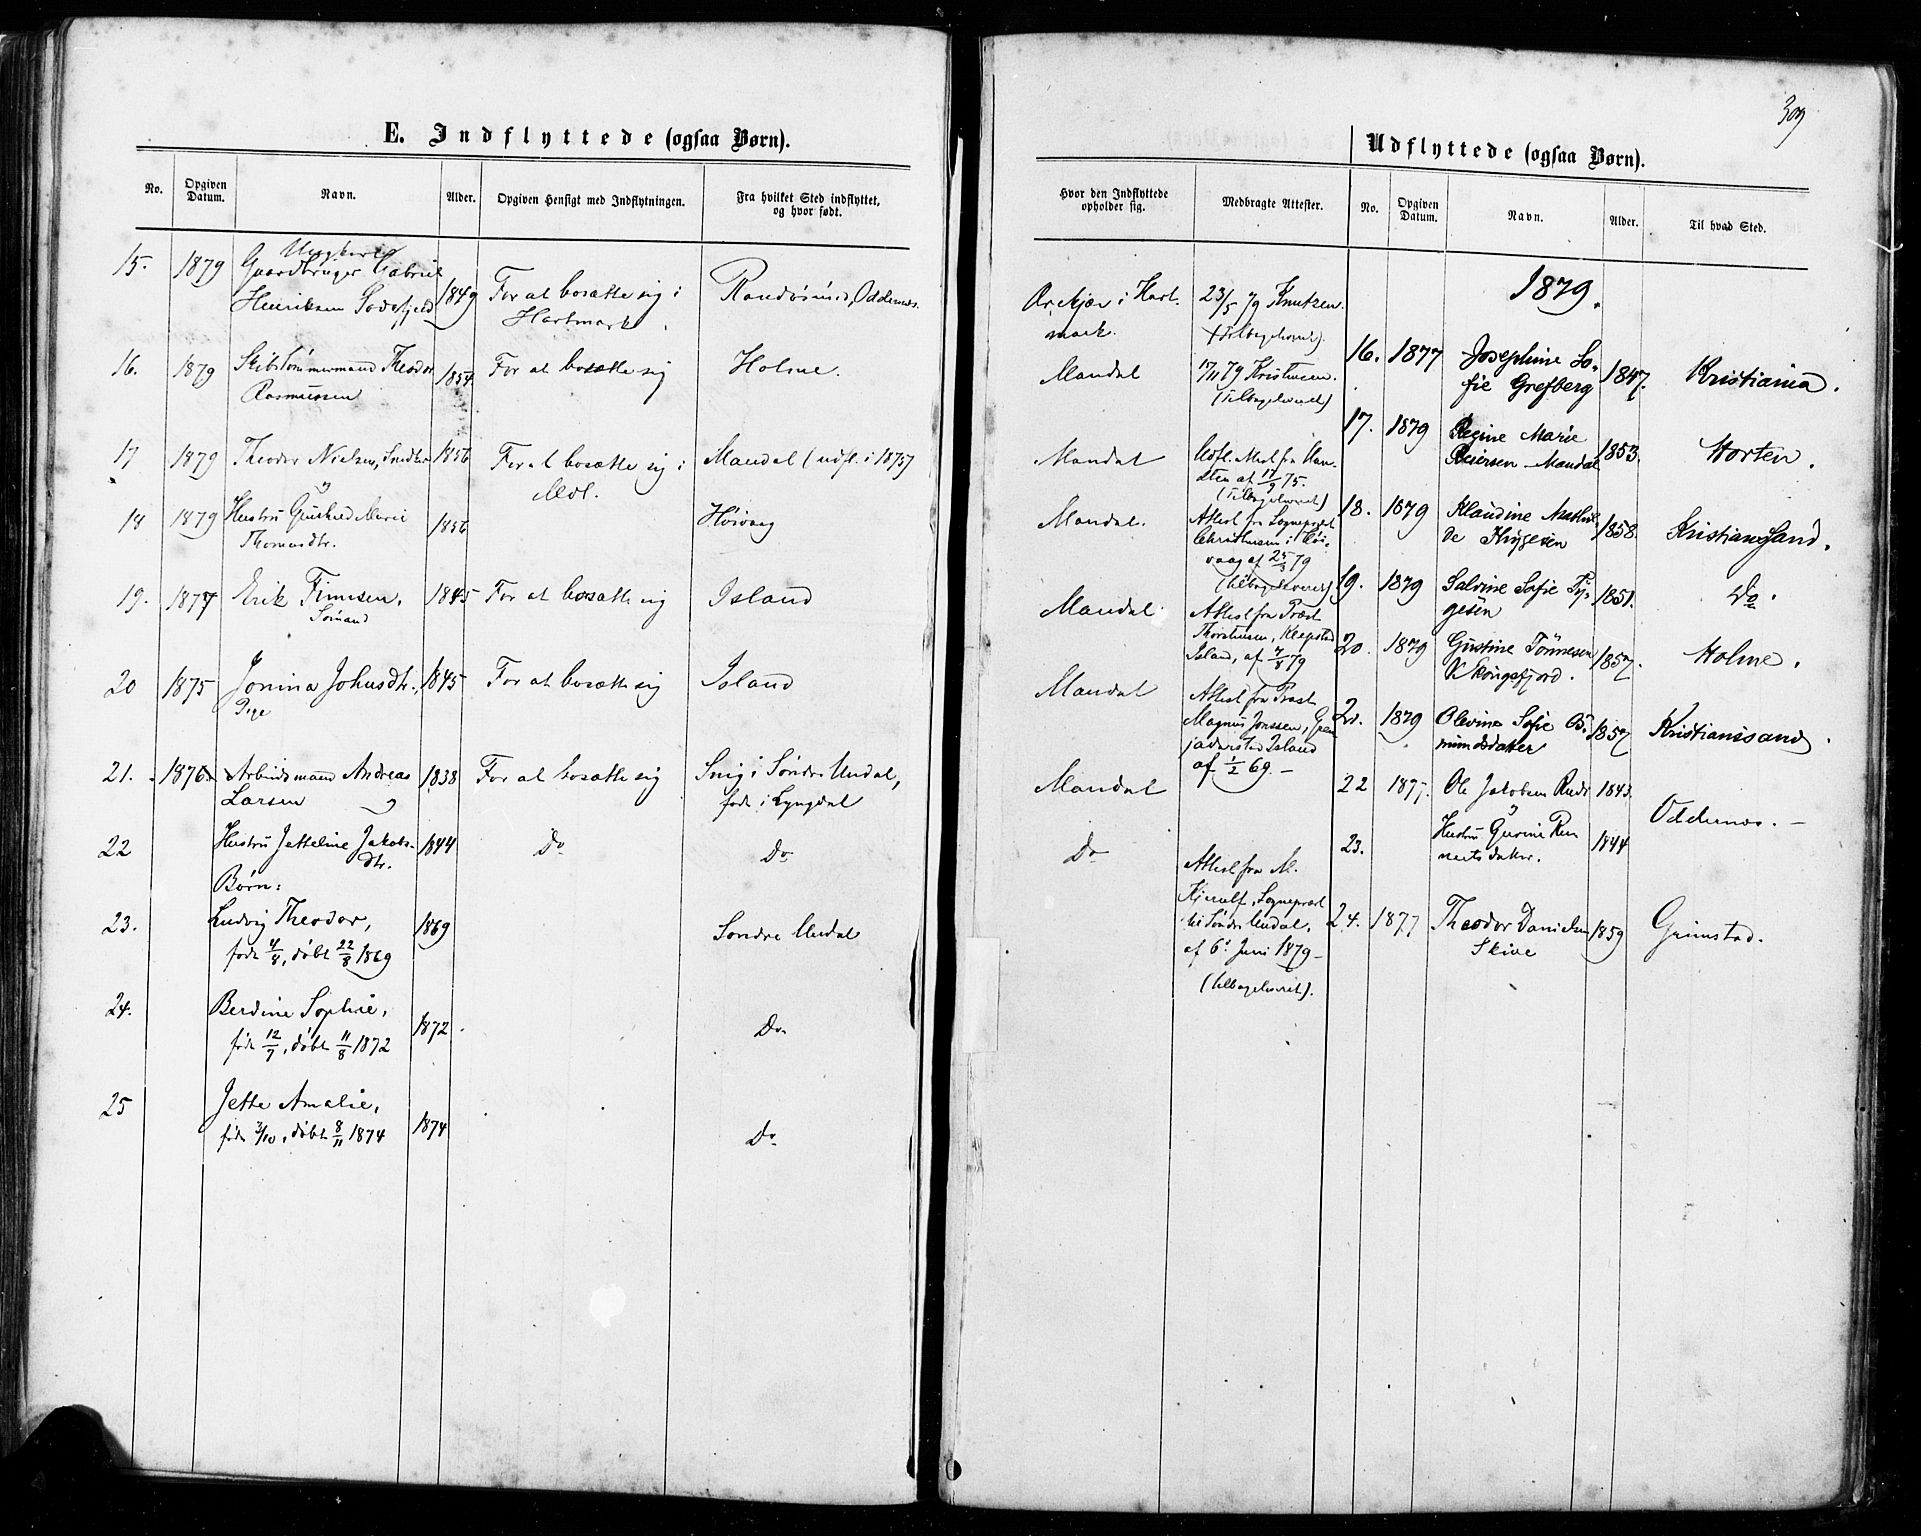 309
E. Indflyttede (ogsaa Børn).
No.
Opgiven Datum.
Navn.
Alder.
Opgiven Hensigt med Indflytningen.
Fra hvilket Sted indflyttet, og hvor født.
15. 1879 Ungkarl
Gaardbruger Gabriel 1849 For at bosætte sig i Randøsund, Oddernes.
Henriksen Hartmark.
16. 1879 Skibstømmermand Theodor 1854 For at bosætte sig Holme.
Rasmussen
17 1879 Theodor Nielsen, 1856 For at bosætte sig i Mandal (udfl. i 1875)
Mdl.
18 1879 Hustru Gunhild Marie 1856 Høivaag
Thomasdtr.
19. 1877 Erik Finnsen, 1845 For at bosætte sig Island
Sømand
20 1875 Jonina Johnsdtr., 1845 For at bosætte sig Island
Pige
21. 1876 Arbeidsmand Andreas 1838 For at bosætte sig Snig i Søndre Undal,
Larsen født i Lyngdal
22 Hustru Jetteline Jakobs- 1844 Do Do
dtr.
Børn:
23. Ludvig Theodor, 1869 Søndre Undal
født 4/8, døbt 22/8 1869
24. Berdine Sophie, 1872. Do
født 12/7, døbt 11/8 1872
25 Jette Amalie, 1874 Do
født 3/10, døbt 8/11 1874
Hvor den Indflyttede opholder sig.
Medbragte Attester.
i Hart-
mark.
23/5 79 Knutzen.
(tilbageleveret).
Mandal
17/11 79 Kristensen.
(Tilbageleveret)
Mandal
Udfl. Attest fra
af 17/9 75.
(Tilbageleveret)
Mandal.
Attest fra Sogneprest
Christensen i Høi-
vaag af 25/3 79
(tilbageleveret)
Mandal
Attest fra Præst
Thorstensen,
Island, af 4/8 79
Mandal
Attest fra Præst
Magnus Jonssen, Gren-
jaderstad Island
af 1/2 69. —
Mandal
Do
Attest fra M.
Kjerulf, Sogneprest
til Søndre Undal,
af 6te Juni 1879 —
(tilbageleveret).
Udflyttede (ogsaa Børn).
No.
Opgiven Datum.
Navn.
Alder.
Til hvad Sted.
1879.
16. 1877 Josephine So- 1847. Kristiania.
fie Grefberg
17. 1879 Regine Marie 1853. Horten.
Reiersen Mandal
18. 1879 Klaudine Mathil- 1858. Kristianssand.
de
19. 1879 Salvine Sofie Ty- 1851. Do.
gesen
20. 1879 Gustine Tønnesen 1857. Holme.
Skongsfjord.
21. 1879 Olevine Sofie Os- 1857 Kristianssand.
mundsdatter
22 1877. Ole Jakobsen 1843. Oddernes. —
23. Hustru Gurine Rei- 1844
nertsdatter.
24. 1877 Theodor Danielsen 1859 Grimstad.
Skive